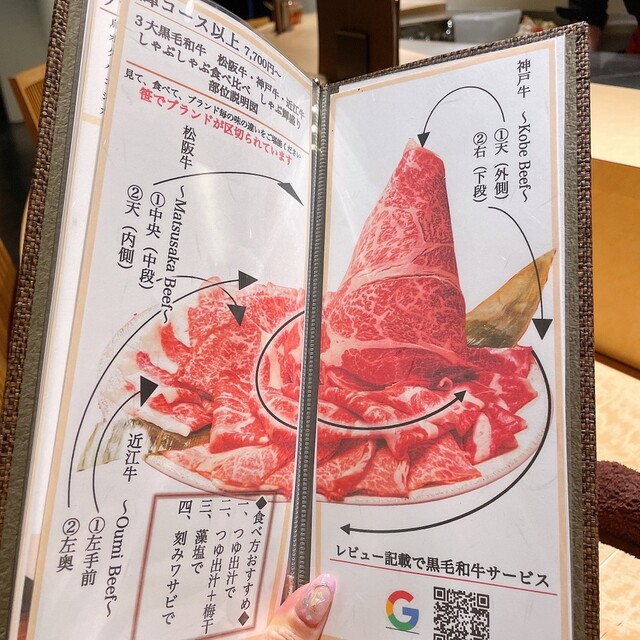 コース以上 7,700円～
3大黒毛和牛 松阪牛・神戸牛・近江牛
しゃぶしゃぶ食べ比べ しゃぶ御盛り
部位説明図
見て、食べて、ブランド毎の味の違いをご堪能ください
笹でブランドが区切られています
松阪牛 ～Matsusaka Beef～
①中央（中段）
②天（内側）
近江牛 ～Oumi Beef～
①左手前
②左奥
◆食べ方おすすめ◆
一、つゆ出汁で
二、つゆ出汁＋梅干
三、藻塩で
四、刻みワサビで
神戸牛 ～Kobe Beef～
①天（外側）
②右（下段）
レビュー記載で黒毛和牛サービス
G